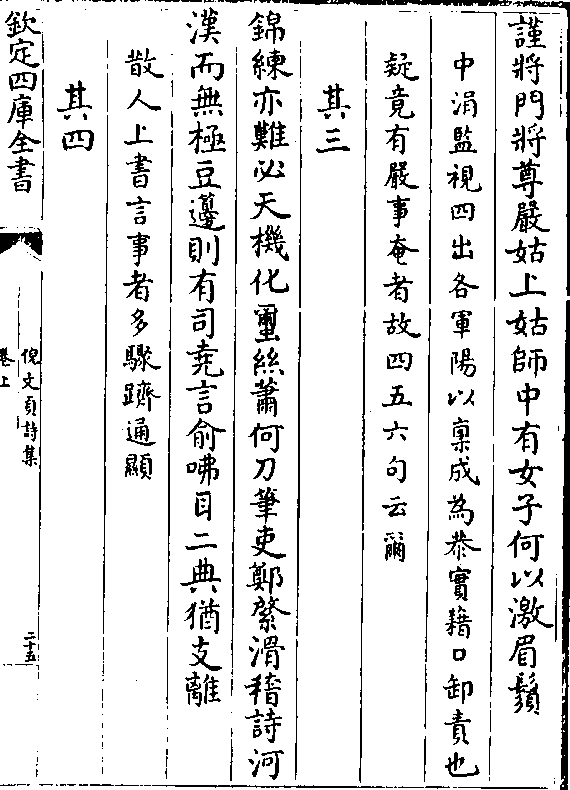 謹將門將尊嚴姑上姑師中有女子何以激眉鬚
中涓監視四出各軍陽以稟成為恭實藉口卸責也
疑竟有嚴事奄者故四五六句云爾
其三
錦練亦難必天機化蠒絲蕭何刀筆吏鄭綮滑稽詩河
漢而無極豆籩則有司堯言俞咈目二典猶支離
散人上書言事者多驟躋通顯
其四
欽定四庫全書
倪文貞詩集
卷上
二十五